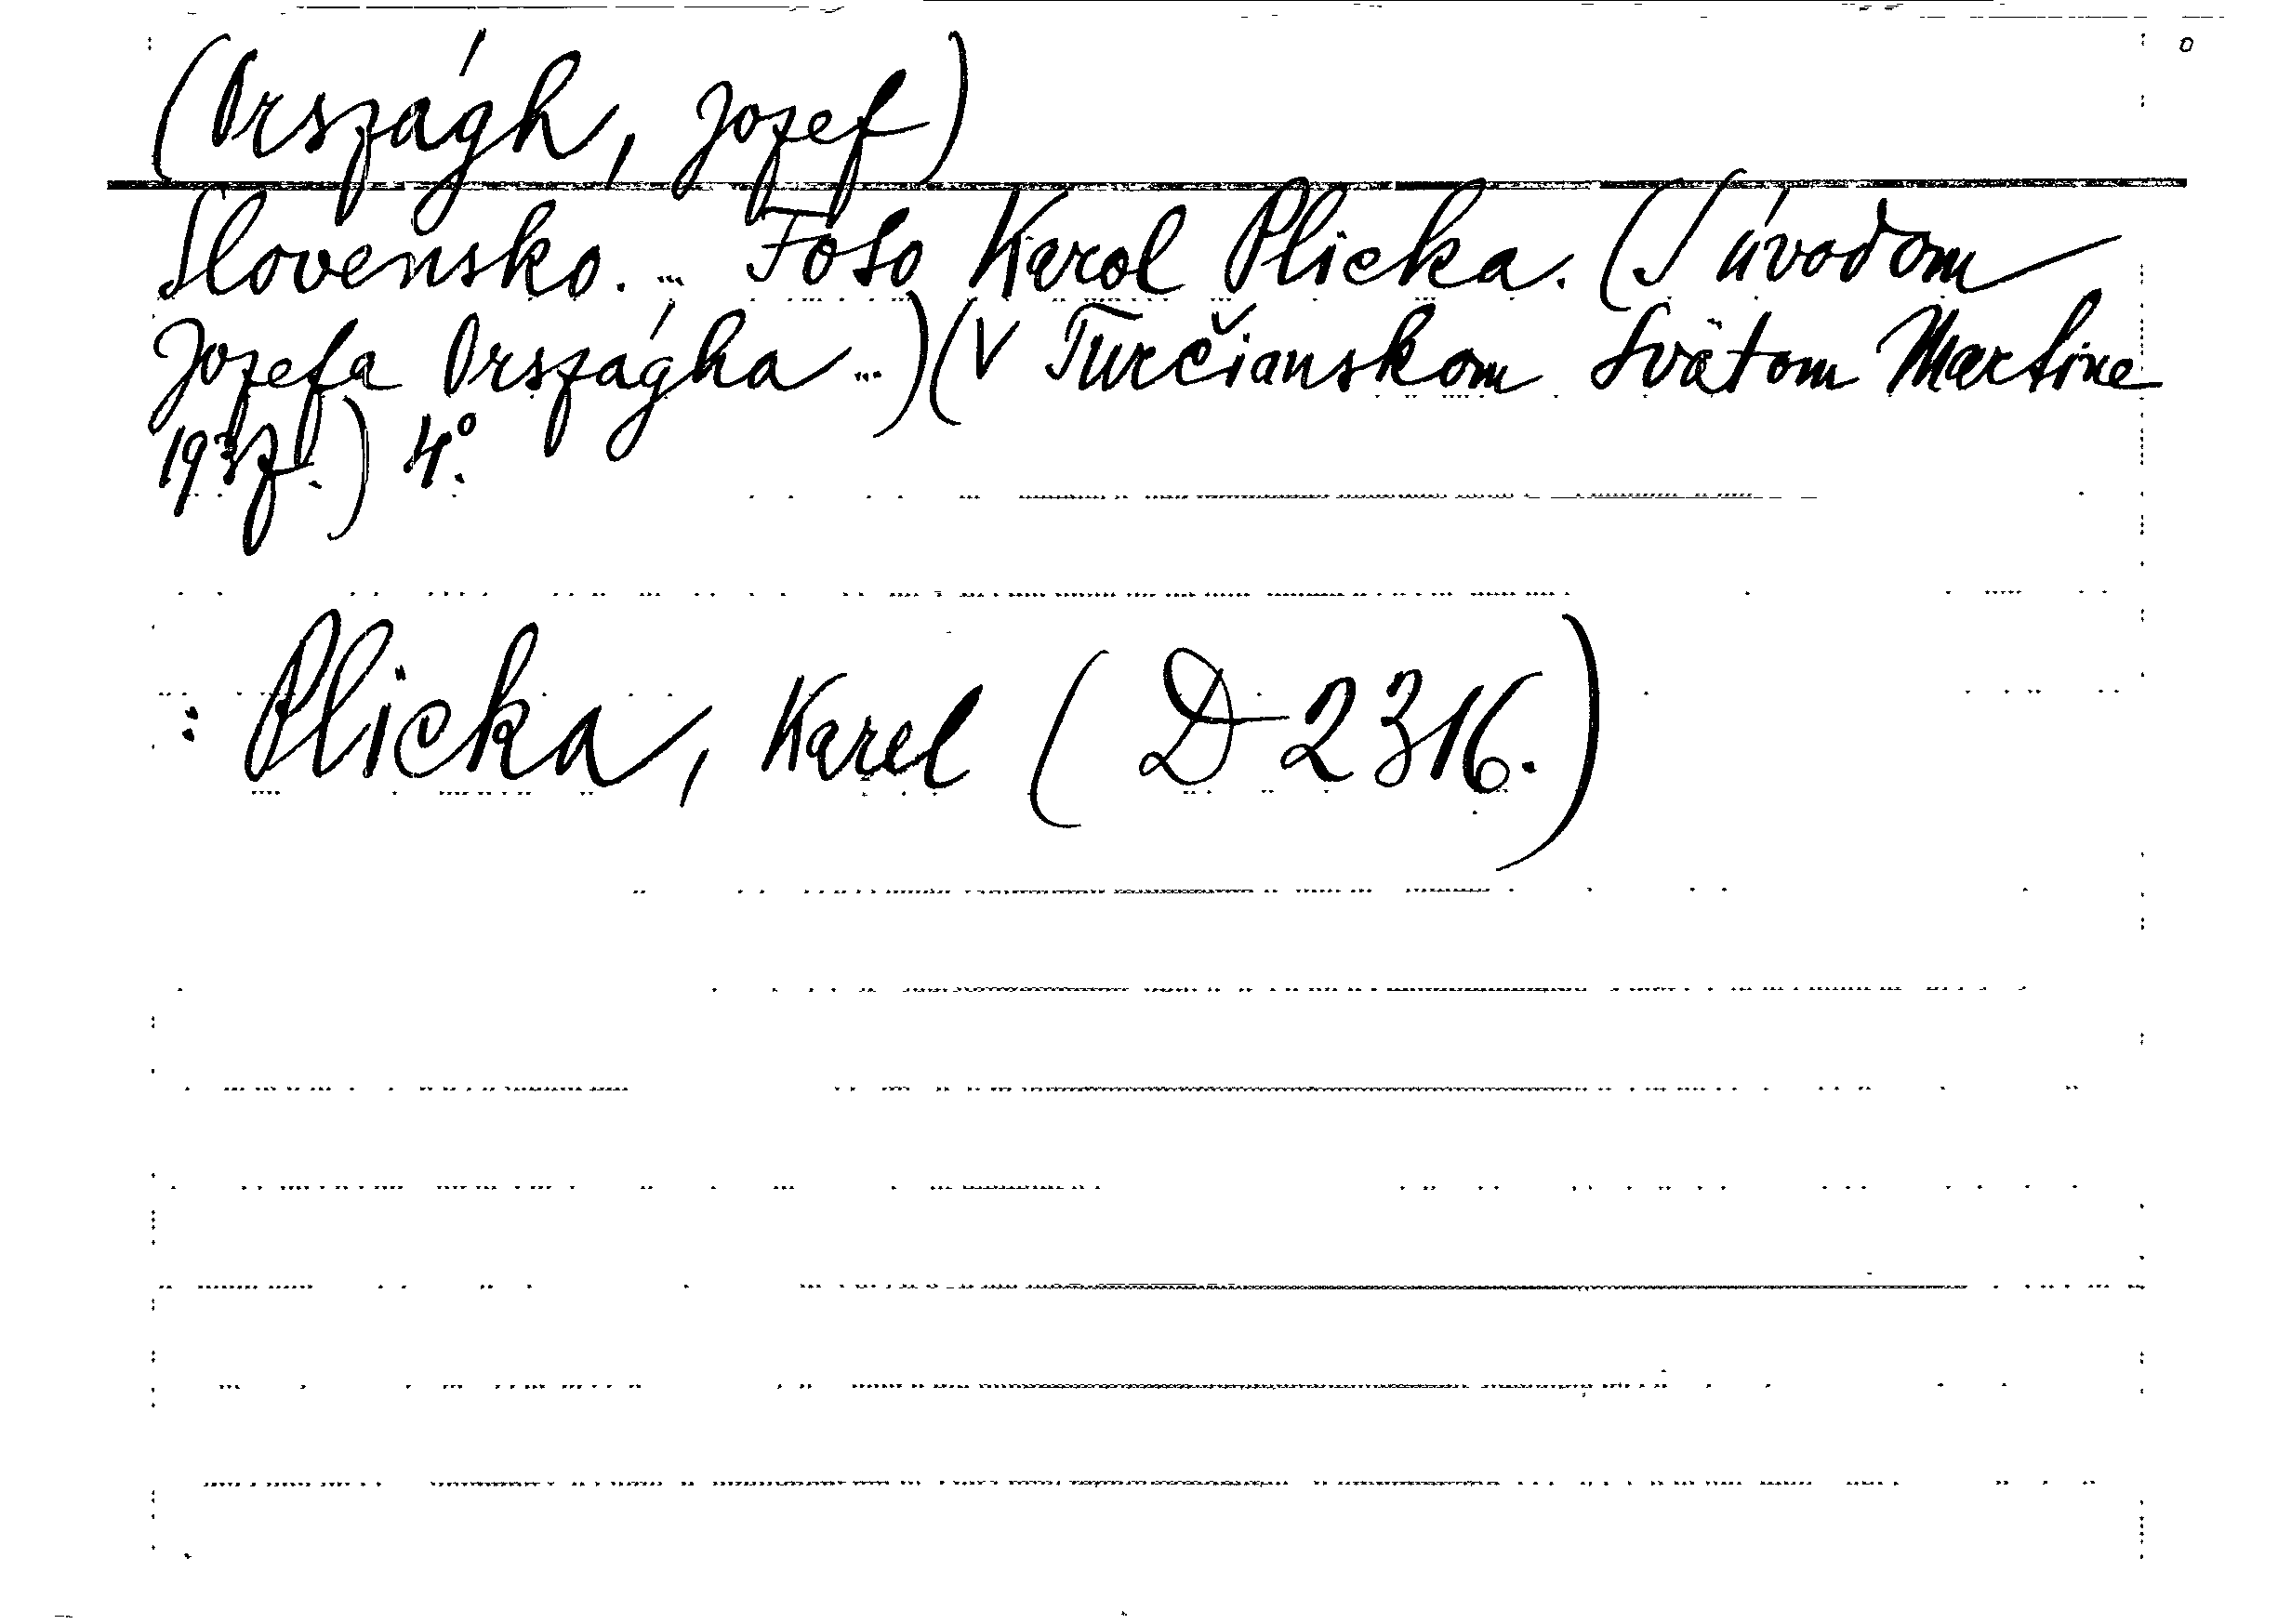 (Országh, Jozef)
Slovensko. ... Foto Karol Plicka. (S úvodom
Jozefa Országha ...) (V Turčianskom Svätom Martine
1937.) 4°.
: Plicka, Karel (D 2316.)